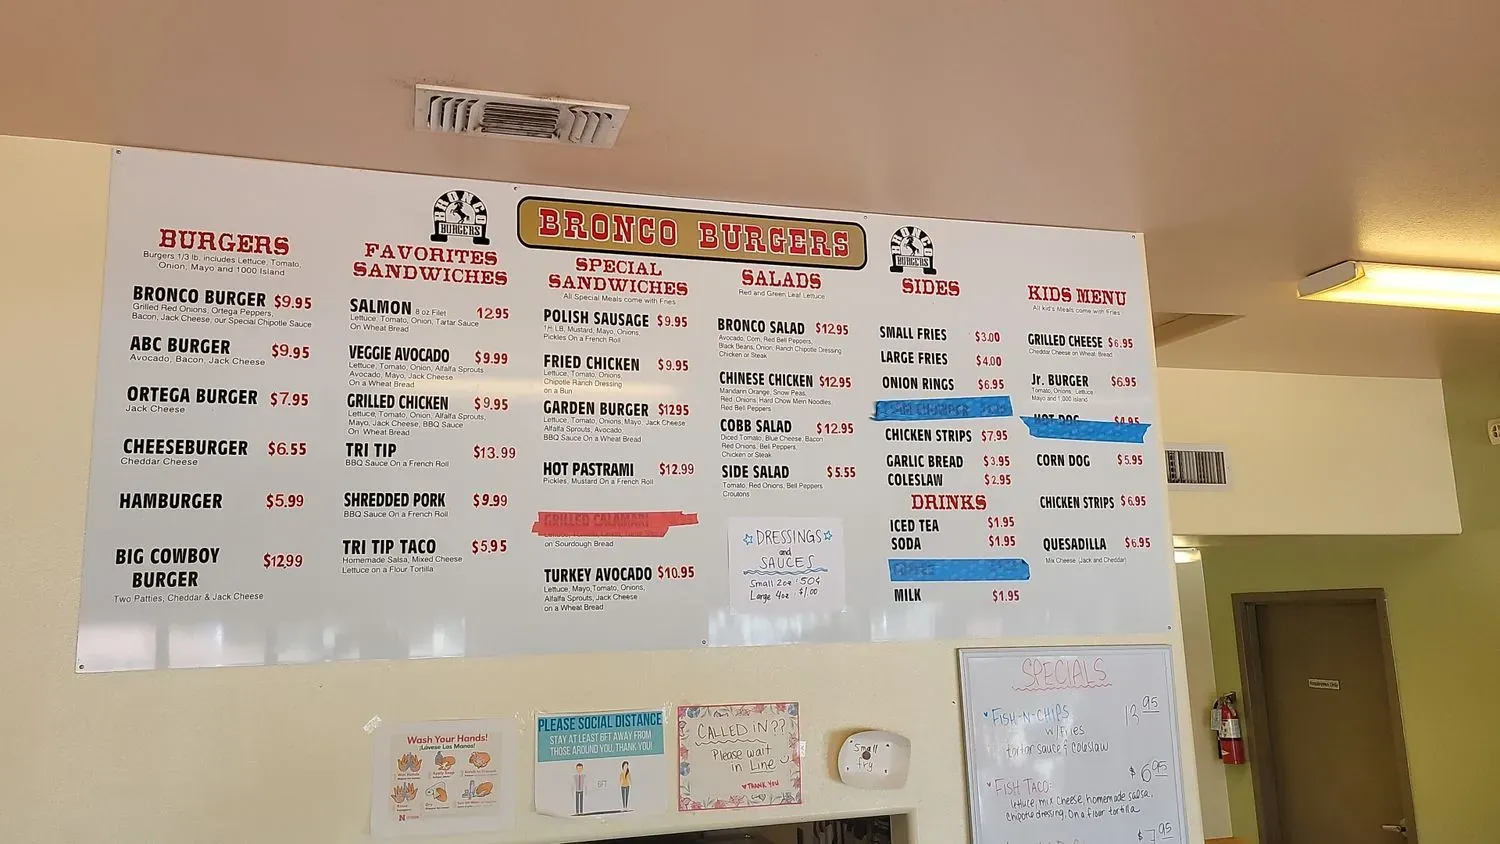 BRONCO BURGERS
BRONCO
BURGERS
BRONCO
BURGERS
BURGERS
Burgers 1/3 lb. includes Lettuce, Tomato,
Onion, Mayo and 1000 Island
BRONCO BURGER $9.95
Grilled Red Onions, Ortega Peppers,
Bacon, Jack Cheese, our Special Chipotle Sauce
ABC BURGER $9.95
Avocado, Bacon, Jack Cheese
ORTEGA BURGER $7.95
Jack Cheese
CHEESEBURGER $6.55
Cheddar Cheese
HAMBURGER $5.99
BIG COWBOY
BURGER $12.99
Two Patties, Cheddar & Jack Cheese
FAVORITES
SANDWICHES
SALMON 8 oz Filet 12.95
Lettuce, Tomato, Onion, Tartar Sauce
On Wheat Bread
VEGGIE AVOCADO $9.99
Lettuce, Tomato, Onion, Alfalfa Sprouts
Avocado, Mayo, Jack Cheese
On a Wheat Bread
GRILLED CHICKEN $9.95
Lettuce, Tomato, Onion, Alfalfa Sprouts,
Mayo, Jack Cheese, BBQ Sauce
On Wheat Bread
TRI TIP $13.99
BBQ Sauce On a French Roll
SHREDDED PORK $9.99
BBQ Sauce On a French Roll
TRI TIP TACO $5.95
Homemade Salsa, Mixed Cheese
Lettuce on a Flour Tortilla
SPECIAL
SANDWICHES
All Special Meals come with Fries
POLISH SAUSAGE $9.95
LB, Mustard, Mayo, Onions,
Pickles On a French Roll
FRIED CHICKEN $9.95
Lettuce, Tomato, Onions
Chipotle Ranch Dressing
on a Bun
GARDEN BURGER $1295
Lettuce, Tomato, Onions, Mayo, Jack Cheese
Alfalfa Sprouts, Avocado,
BBQ Sauce On a Wheat Bread
HOT PASTRAMI $12.99
Pickles, Mustard On a French Roll
GRILLED CALAMARI
on Sourdough Bread
TURKEY AVOCADO $10.95
Lettuce, Mayo, Tomato, Onions,
Alfalfa Sprouts, Jack Cheese
on a Wheat Bread
SALADS
Red and Green Leaf Lettuce
BRONCO SALAD $12.95
Avocado, Corn, Red Bell Peppers,
Black Beans, Onion, Ranch Chipotle Dressing
Chicken or Steak
CHINESE CHICKEN $12.95
Mandarin Orange, Snow Peas,
Red Onions, Hard Chow Mein Noodles,
Red Bell Peppers
COBB SALAD $12.95
Diced Tomato, Blue Cheese, Bacon
Red Onions, Bell Peppers,
Chicken or Steak
SIDE SALAD $5.55
Tomato, Red Onions, Bell Peppers
Croutons
DRESSINGS
and
SAUCES
Small 2oz : 50¢
Large 4oz : $1.00
SIDES
SMALL FRIES $3.00
LARGE FRIES $4.00
ONION RINGS $6.95
CHICKEN STRIPS $7.95
GARLIC BREAD $3.95
COLESLAW $2.95
DRINKS
ICED TEA $1.95
SODA $1.95
MILK $1.95
KIDS MENU
All kid's Meals come with Fries
GRILLED CHEESE $6.95
Cheddar Cheese on Wheat Bread
Jr. BURGER $6.95
Tomato, Onions, Lettuce
Mayo and 1,000 Island
HOT DOG $4.95
CORN DOG $5.95
CHICKEN STRIPS $6.95
QUESADILLA $6.95
Mix Cheese (Jack and Cheddar)
Wash Your Hands!
¡Lávese Las Manos!
PLEASE SOCIAL DISTANCE
STAY AT LEAST 6FT AWAY FROM
THOSE AROUND YOU, THANK YOU!
6FT
CALLED IN??
Please wait
in Line
THANK YOU
Small
fry
SPECIALS
FISH-N-CHIPS 13.95
w/ Fries
tartar sauce & coleslaw
FISH TACO: $6.95
lettuce, mix cheese, homemade salsa,
chipotle dressing, On a flour tortilla